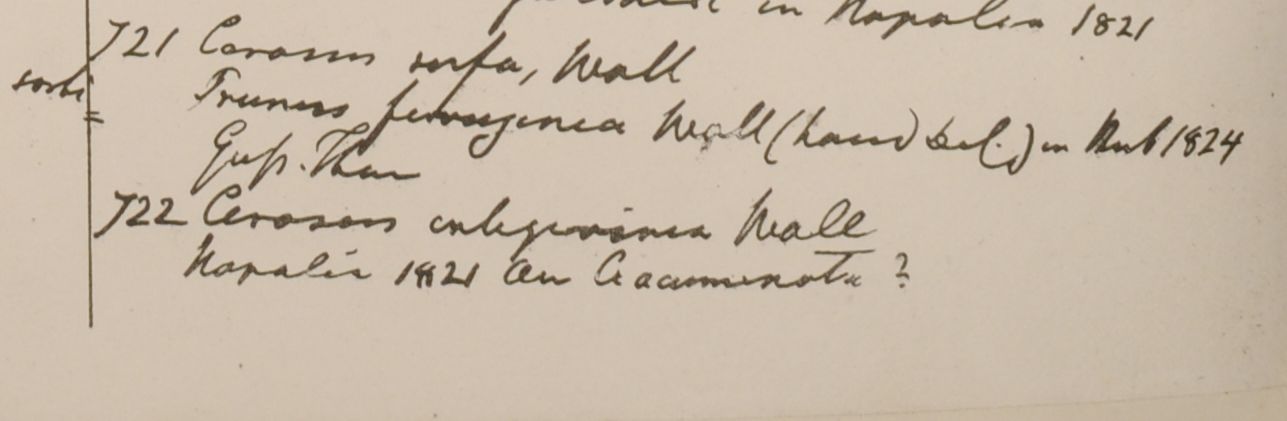 in Napalia 1821
721 Cerasus rufa, Wall
Prunus ferruginea Wall (haud Sal.) in 1824
722 Cerasus integerrima Wall
Napalia 1821 an C acuminata ?